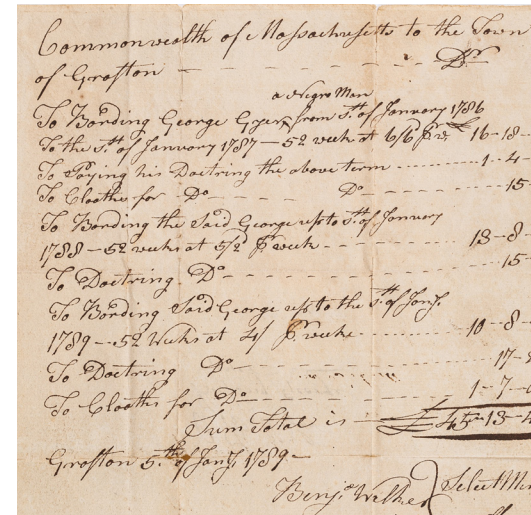 Commonwealth of Massachusetts to the Town
of Grafton — Dr
a Negro Man
To Bording George from 5th of January 1786
To the 5th of January 1787 – 52 week at 6/6 pr we 16-18-
To Paying his Doctring the above term 1-4-
To Cloathes for Do Do 15-
To Bording the Said George up to 5th of January
1788 – 52 weeks at 5/2 pr week 13-8-
To Doctring Do 15-
To Bording Said George up to the 5th of Jany
1789 – 52 Weeks at 4/ pr weeke 10-8-
To Doctring Do 17-
To Cloaths for Do 1-7-
Sum Total is £ 45-13-4
Grafton 5th of Jany 1789 –
Benja Select